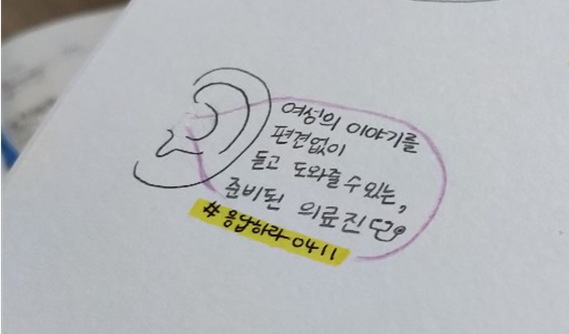 여성의 이야기를
편견없이
듣고 도와줄 수 있는,
준비된 의료진
#응답하라0411